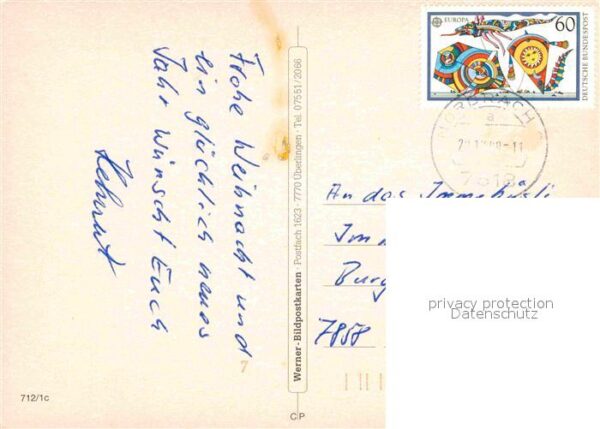 Frohe Weihnacht und
ein glücklich neues
Jahr wünscht Euch
712/1c
Werner-Bildpostkarten · Postfach 1623 · 7770 Überlingen · Tel. 07551/2066
CP
EUROPA
60
DEUTSCHE BUNDESPOST
a
7813
An das
Burg
7858
privacy protection
Datenschutz